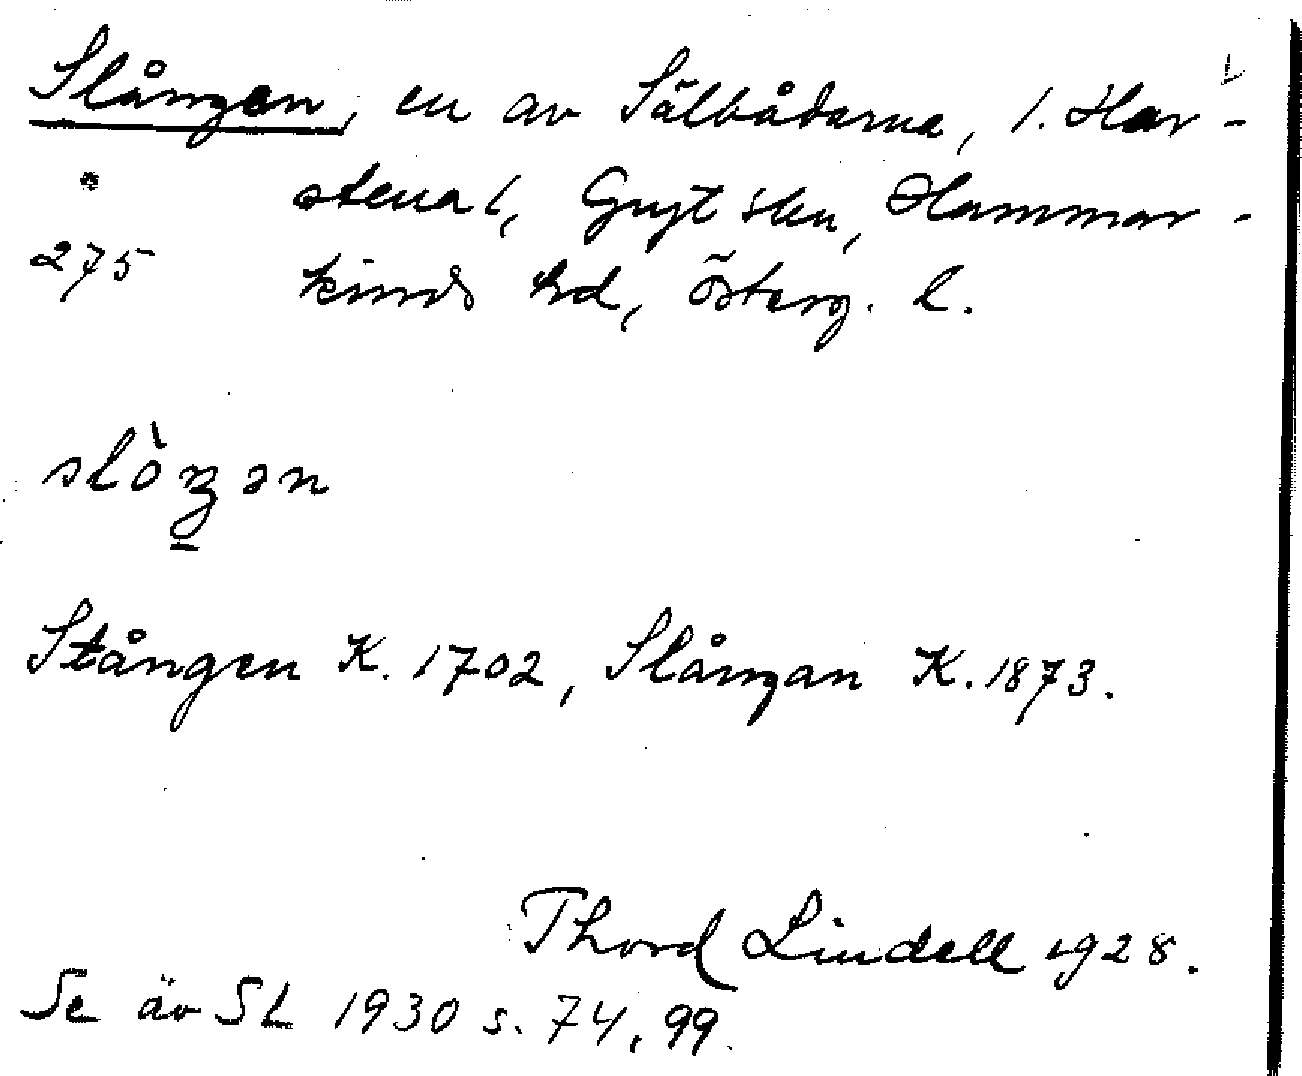 Slången, en av Sälbådarna, 1. Har-
stena l, Gryt skn, Hammar-
275 kinds hd, Österg. l.
slòŋən
Stången K. 1702, Slångan K. 1873.
Thord Lindell 1928.
Se äv SL 1930 s. 74, 99.